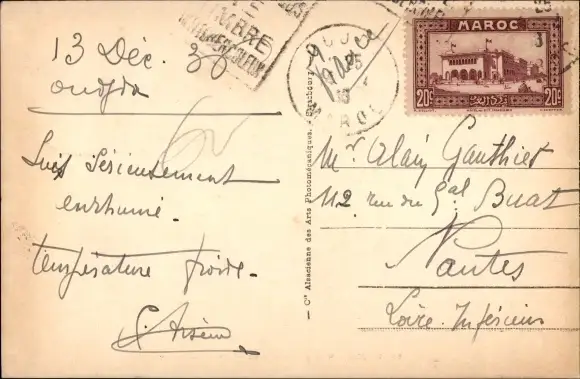 TIMBRE
ANTITUBERCULEUX
MAROC
20c 20c
13 Déc.
oudjda
Suis sérieusement
enrhumé.
température froide.
Cie Alsacienne des Arts Photomécaniques, Strasbourg
Mr Alain Gauthier
112 rue du Gal Buat
Nantes
Loire Inférieure